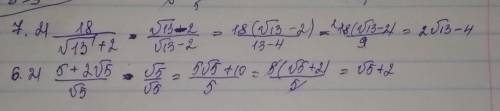 7. 2) 18/(√13+2) · (√13-2)/(√13-2) = 18(√13-2)/(13-4) = 18(√13-2)/9 = 2√13-4
6. 2) (5+2√5)/√5 · √5/√5 = (5√5+10)/5 = 5(√5+2)/5 = √5+2